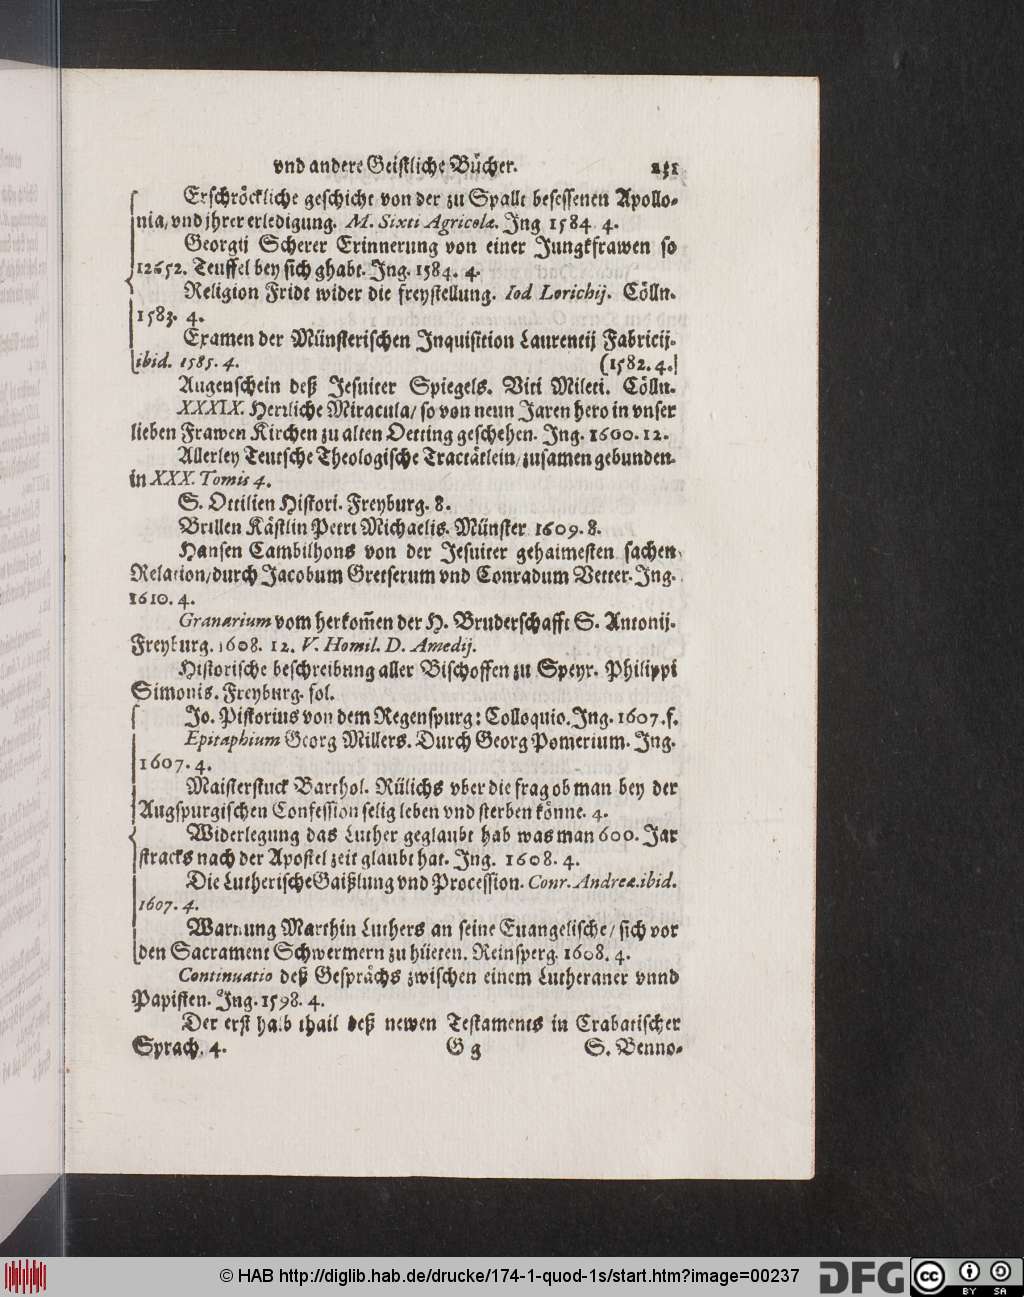 vnd andere Geistliche Bücher. 231
Erschröckliche geschicht von der zu Spalt besessenen Apollo-
nia, vnd jhrer erledigung. M. Sixti Agricolæ. Jng 1584 4.
Georgij Scherer Erinnerung von einer Jungkfrawen so
12652. Teuffel bey sich ghabt. Jng. 1584. 4.
Religion Fridt wider die freystellung. Iod Lorichij. Cölln.
1583. 4.
Examen der Münsterischen Inquisition Laurentij Fabricij.
ibid. 1585. 4. (1582. 4.)
Augenschein deß Jesuiter Spiegels. Viti Mileti. Cölln.
XXXIX. Herrliche Miracula/ so von neun Jaren hero in vnser
lieben Frawen Kirchen zu alten Oetting geschehen. Jng. 1600. 12.
Allerley Teutsche Theologische Tractätlein/ zusamen gebunden.
in XXX. Tomis 4.
S. Ottilien Histori. Freyburg. 8.
Brillen Kästlin Petri Michaelis. Münster 1609. 8.
Hansen Cambilhons von der Jesuiter gehaimesten sachen
Relation/ durch Jacobum Gretserum vnd Conradum Vetter. Jng.
1610. 4.
Granarium vom herkom̃en der H. Bruderschafft S. Antonij.
Freyburg. 1608. 12. V. Homil. D. Amedij.
Historische beschreibung aller Bischoffen zu Speyr. Philippi
Simonis. Freyburg. fol.
Jo. Pistorius von dem Regenspurg: Colloquio. Jng. 1607. f.
Epitaphium Georg Millers. Durch Georg Pomerium. Jng.
1607. 4.
Maisterstuck Barthol. Rülichs vber die frag ob man bey der
Augspurgischen Confession selig leben vnd sterben könne. 4.
Widerlegung das Luther geglaubt hab was man 600. Jar
stracks nach der Apostel zeit glaubt hat. Jng. 1608. 4.
Die Lutherische Gaißlung vnd Procession. Conr. Andreæ. ibid.
1607. 4.
Warnung Marthin Luthers an seine Euangelische/ sich vor
den Sacrament Schwermern zu hüeten. Reinsperg. 1608. 4.
Continuatio deß Gesprächs zwischen einem Lutheraner vnnd
Papisten. Jng. 1598. 4.
Der erst halb thail deß newen Testaments in Crabatischer
Sprach. 4. G g S. Benno-
© HAB http://diglib.hab.de/drucke/174-1-quod-1s/start.htm?image=00237 DFG CC BY SA